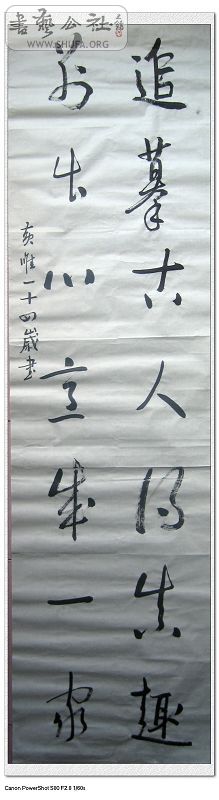 書藝公社
WWW.SHUFA.ORG
追摹古人得真趣
别出心意成一家
黄惟一十四歲書
Canon PowerShot S80 F2.8 1/60s